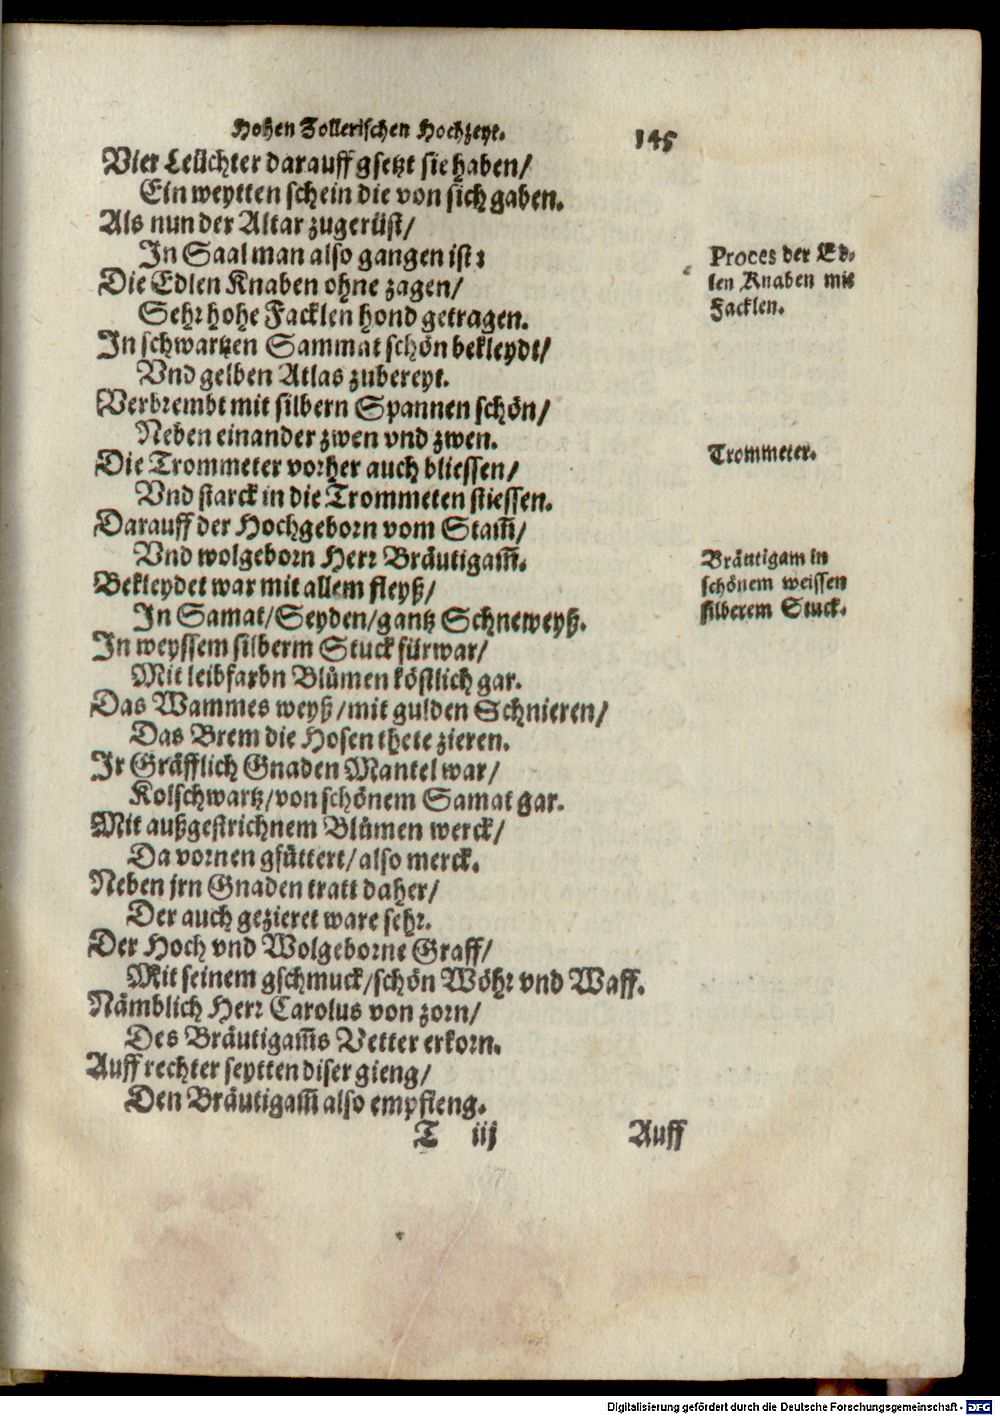 Hohen Zollerischen Hochzeyt. 145
Vier Leüchter darauff gsetzt sie haben/
Ein weytten schein die von sich gaben.
Als nun der Altar zugerüst/
In Saal man also gangen ist:
Proces der Ed-
len Knaben mit
Facklen.
Die Edlen Knaben ohne zagen/
Sehr hohe Facklen hond getragen.
In schwartzen Sammat schön bekleydt/
Vnd gelben Atlas zubereyt.
Verbrembt mit silbern Spannen schön/
Neben einander zwen vnd zwen.
Trommeter.
Die Trommeter vorher auch bliessen/
Vnd starck in die Trommeten stiessen.
Darauff der Hochgeborn vom Stam̃/
Vnd wolgeborn Herr Bräutigam̃.
Bräutigam in
schönem weissen
silberem Stuck.
Bekleydet war mit allem fleyß/
In Samat/Seyden/gantz Schneweyß.
In weyssem silberm Stuck fürwar/
Mit leibfarbn Blůmen köstlich gar.
Das Wammes weyß/mit gulden Schnieren/
Das Brem die Hosen thete zieren.
Ir Gräfflich Gnaden Mantel war/
Kolschwartz/von schönem Samat gar.
Mit außgestrichnem Blůmen werck/
Da vornen gfüttert/also merck.
Neben jrn Gnaden tratt daher/
Der auch gezieret ware sehr.
Der Hoch vnd Wolgeborne Graff/
Mit seinem gschmuck/schön Wöhr vnd Waff.
Nämblich Herr Carolus von zorn/
Des Bräutigam̃s Vetter erkorn.
Auff rechter seytten diser gieng/
Den Bräutigam̃ also empfieng.
T iij Auff
Digitalisierung gefördert durch die Deutsche Forschungsgemeinschaft - DFG